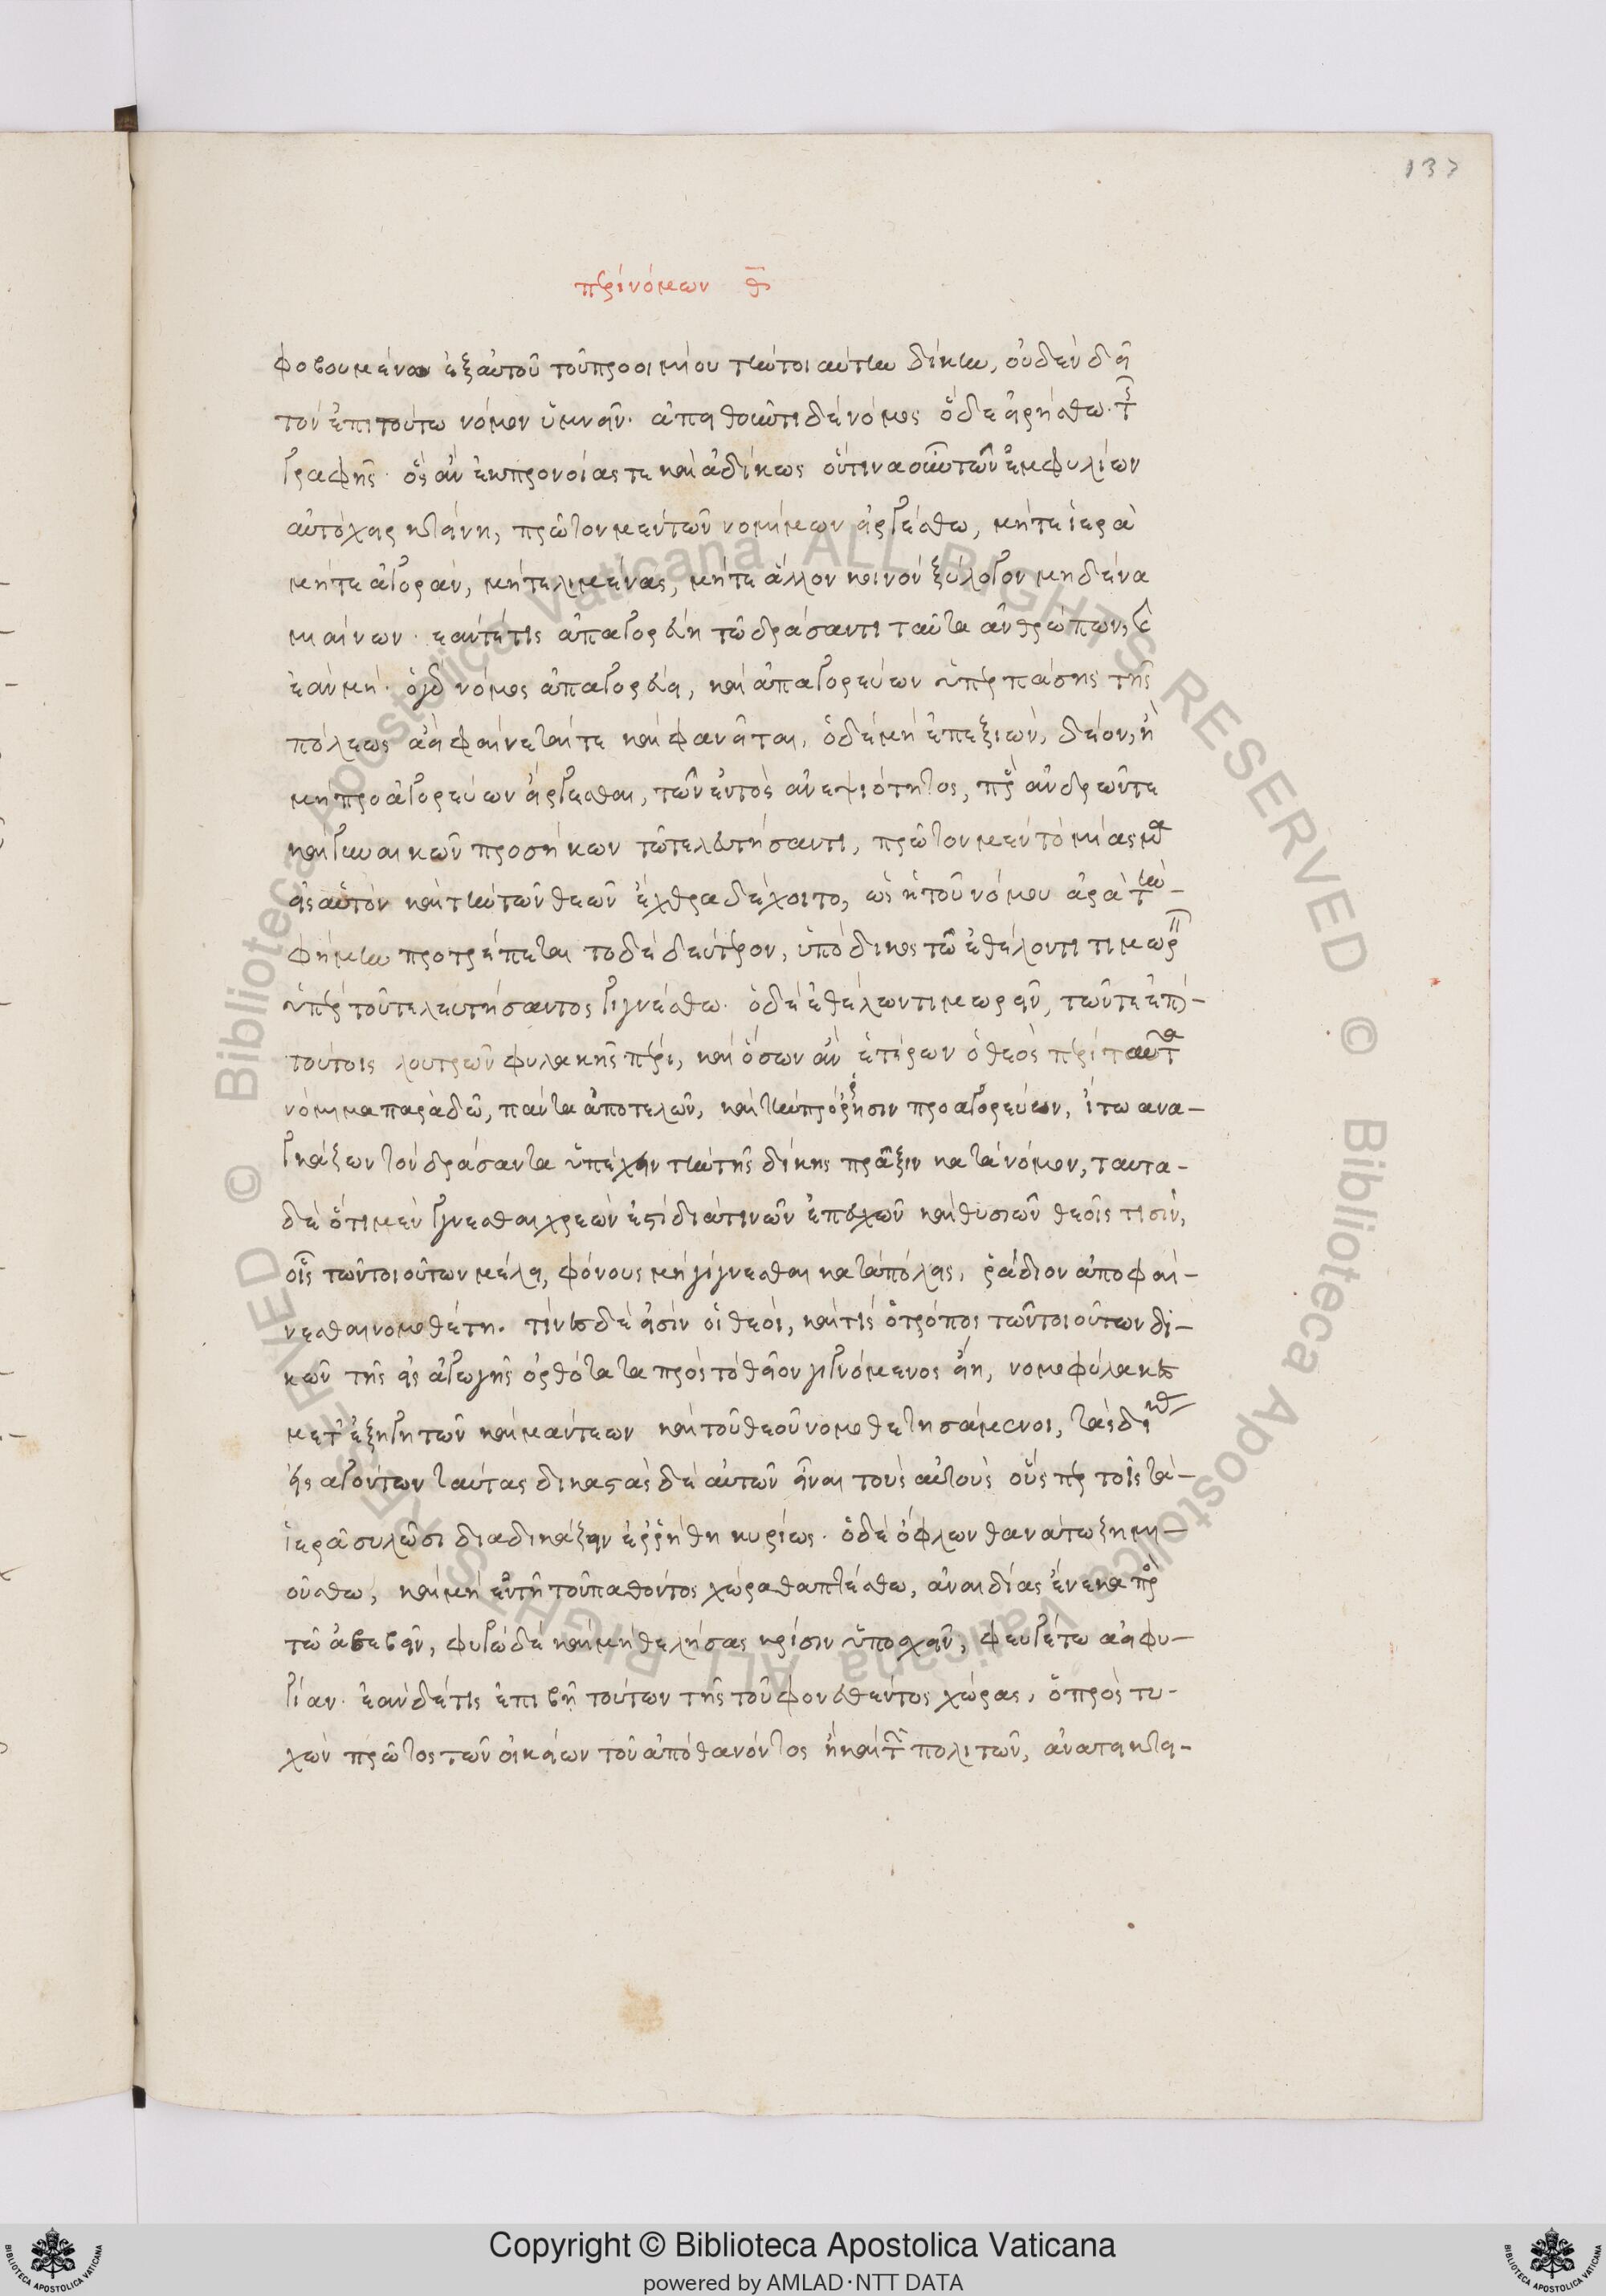 137
περὶ νόμων θ
φοβουμένω ἐξ αὐτοῦ τοῦ προοιμίου τὴν τοιαύτην δίκην, οὐδὲν δεῖ
τὸν ἐπὶ τούτω νόμον ὑμνεῖν. ἀπειθοῦντι δὲ νόμος ὅδε εἰρήσθω τῆς
γραφῆς. ὃς ἂν ἐκ προνοίας τε καὶ ἀδίκως ὅντινα οὖν τῶν ἐμφυλίων
αὐτόχειρ κτείνη, πρῶτον μὲν τῶν νομίμων εἰργέσθω, μήτε ἱερὰ
μήτε ἀγορὰν, μήτε λιμένας, μήτε ἄλλον κοινὸν ξύλογον μηδένα
μιαίνων. ἐάν τέ τις ἀπαγορεύη τῶ δράσαντι ταῦτα ἀνθρώπων, καὶ
ἐὰν μή. ὁ γὰρ νόμος ἀπαγορεύει, καὶ ἀπαγορεύων ὑπὲρ πάσης τῆς
πόλεως ἀεὶ φαίνεταί τε καὶ φανεῖται. ὁ δὲ μὴ ἐπεξιὼν, δέον, ἢ
μὴ προαγορεύων εἴργεσθαι, τῶν ἐντὸς ἀνεψιότητος, πρὸς ἀνδρῶν τε
καὶ γυναικῶν προσήκων τῶ τελευτήσαντι, πρῶτον μὲν τὸ μίασμα
εἰς αὑτὸν καὶ τὴν τῶν θεῶν ἔχθρα δέχοιτο, ὡς ἡ τοῦ νόμου ἀρὰ τὴν
φήμην προτρέπεται τὸ δὲ δεύτερον, ὑπόδικος τῶ ἐθέλοντι τιμωρεῖν
ὑπὲρ τοῦ τελευτήσαντος γιγνέσθω. ὁ δὲ ἐθέλων τιμωρεῖν, τῶν τε ἐπὶ
τούτοις λουτρῶν φυλακῆς πέρι, καὶ ὅσων ἂν ἑτέρων ὁ θεὸς περὶ ταῦτα
νόμιμα παραδῶ, πάντα ἀποτελῶν, καὶ τὴν πρόρρησιν προαγορεύων, ἴτω ανα-
γκάζων τὸν δράσαντα ὑπέχειν τὴν τῆς δίκης πρᾶξιν κατὰ νόμον, ταυτα-
δὲ ὅτι μὲν γίγνεσθαι χρεών ἐστὶ διά τινων ἐπευχῶν καὶ θυσιῶν θεοῖς τισὶν,
οἷς τῶν τοιούτων μέλει, φόνους μὴ γίγνεσθαι κατὰ πόλεις, ῥάδιον ἀποφαί-
νεσθαι νομοθέτη. τίνες δὲ εἰσὶν οἱ θεοὶ, καὶ τίς ὁ τρόποι τῶν τοιούτων δι-
κῶν τῆς εἰσαγωγῆς ὀρθότατα πρὸς τὸ θεῖον γιγνόμενος εἴη, νομοφύλακες
μετ' ἐξηγητῶν καὶ μάντεων καὶ τοῦ θεοῦ νομοθετησάμενοι, τὰς δι
εἰσαγόντων ταύτας δικαστὰς δὲ αὐτῶν εἶναι τοὺς αὐτοὺς οὕσπερ τοῖς τὰ-
ἱερὰ συλῶσι διαδικάζειν ἐρρήθη κυρίως. ὁ δὲ ὀφλων θανάτω ζημι-
ούσθω, καὶ μὴ ἐν τῆ τοῦ παθόντος χώρα θαπτέσθω, ἀναιδίας ἕνεκα πρὸς
τῶ ἀσεβεῖν, φυγὼ δὲ καὶ μὴ θελήσας κρίσιν ὑποσχεῖν, φευγέτω ἀειφυ-
γίαν. ἐὰν δέ τις ἐπιβῆ τούτων τῆς τοῦ φονευθέντος χώρας, ὁ προς τυ-
χὼν πρῶτος τῶν οἰκείων τοῦ ἀποθανόντος ἢ καὶ τῶν πολιτῶν, ἀνατεὶ κτει-
Copyright © Biblioteca Apostolica Vaticana
powered by AMLAD·NTT DATA